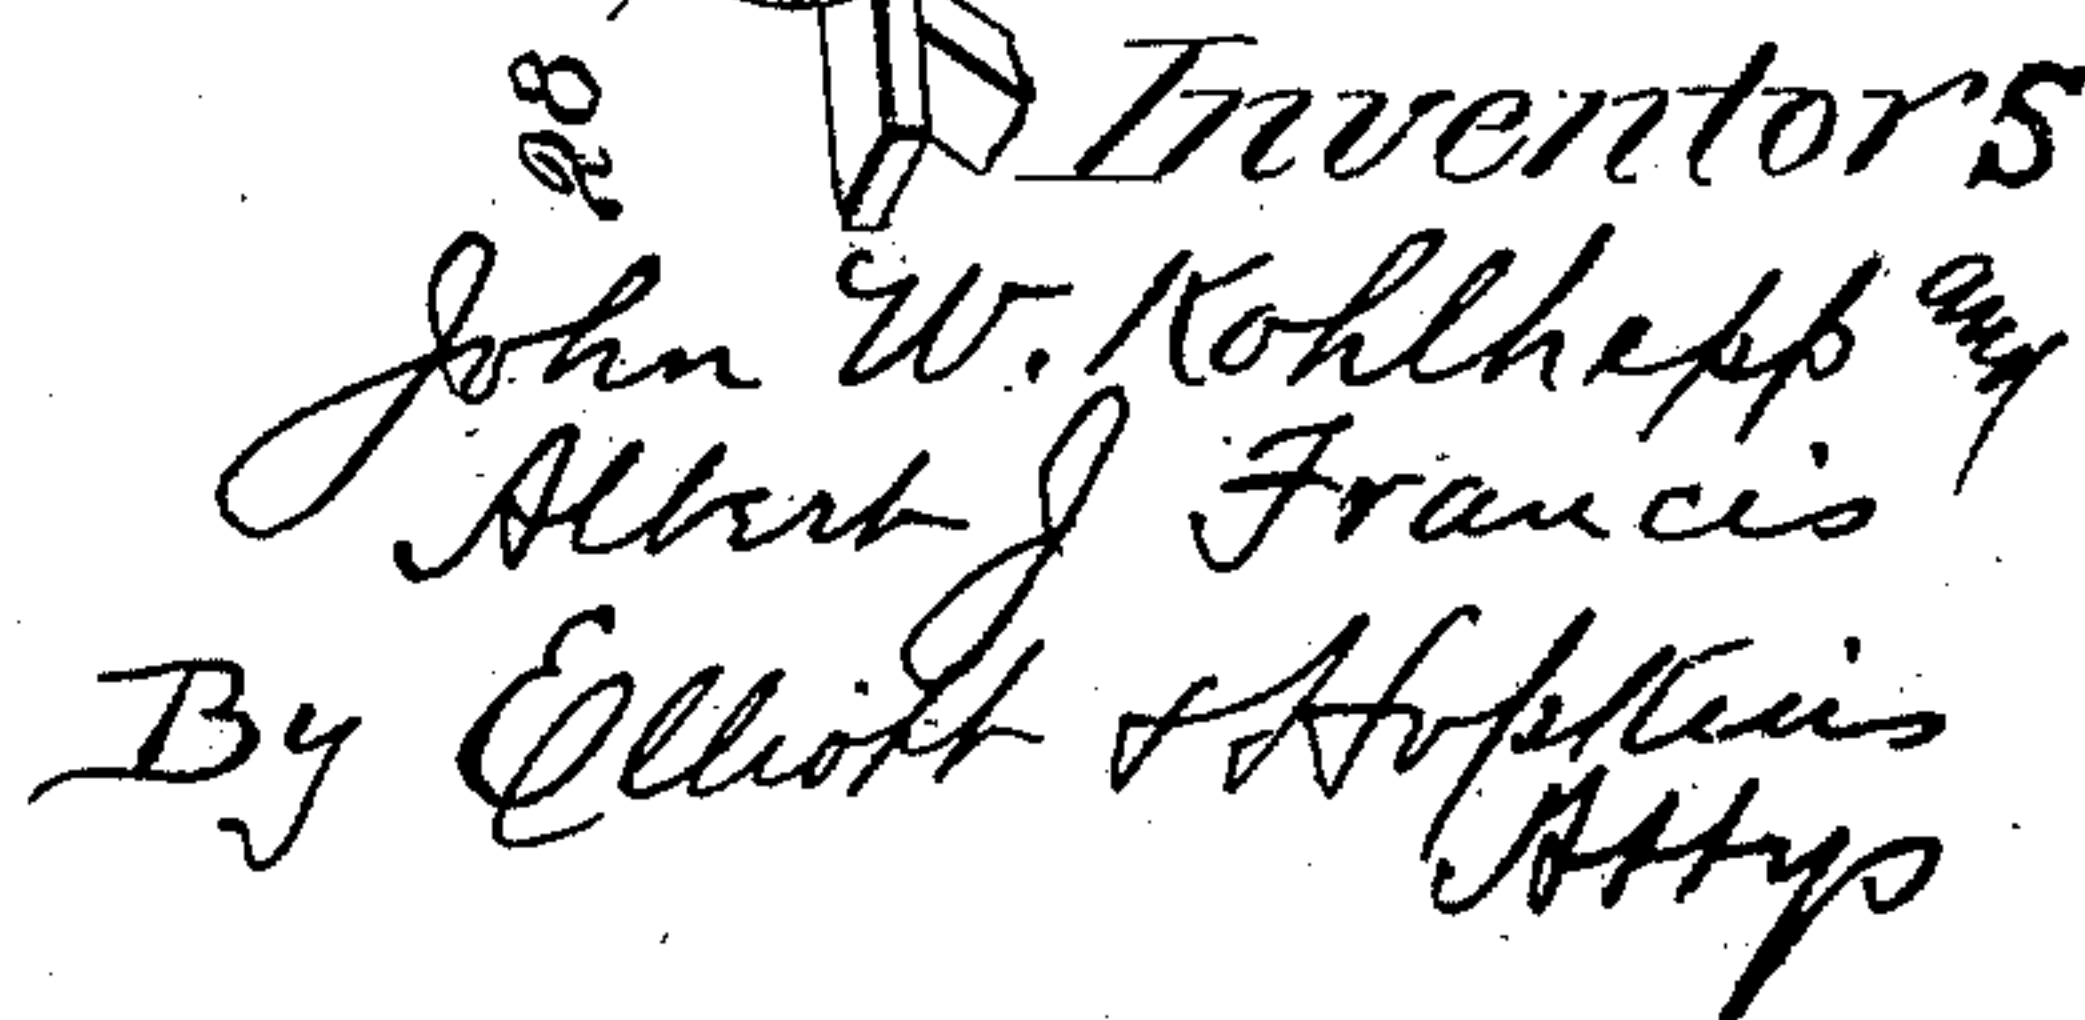 28
Inventors
John W. Kohlhepp and
Albert J Francis
By Elliott & Hopkins
Attys